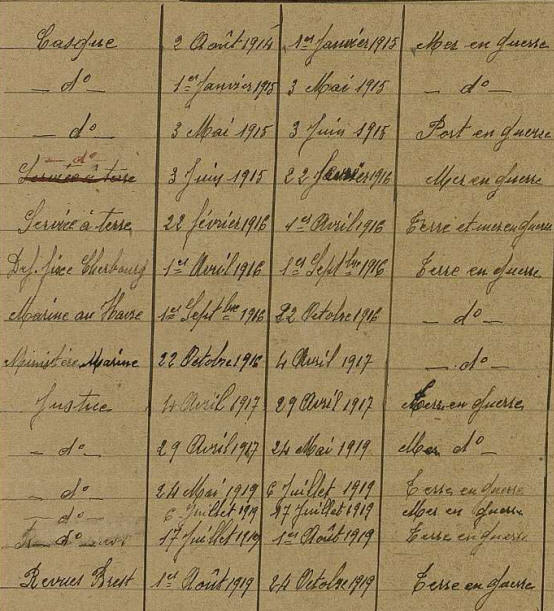 Casque 2 Août 1914 1er Janvier 1915 Mer en guerre
— do — 1er Janvier 1915 3 Mai 1915 — do —
— do 3 Mai 1915 3 Juin 1915 Port en guerre
— do —
Service à terre 3 Juin 1915 22 février 1916 Mer en guerre
Service à terre 22 février 1916 1er Avril 1916 Terre et mer en guerre
Def. fixe Cherbourg 1er Avril 1916 1er Septbre 1916 Terre en guerre
Marine au Havre 1er Septbre 1916 22 Octobre 1916 — do —
Ministère Marine 22 Octobre 1916 4 Avril 1917 — do —
Justice 4 Avril 1917 29 Avril 1917 en guerre
— do — 29 Avril 1917 24 Mai 1919 Mer do —
— do 24 Mai 1919 6 Juillet 1919 Terre en guerre
— do — 6 Juillet 1919 Juillet 1919 Mer en guerre
do 17 Juillet 1919 1er Août 1919 Terre en guerre
Revues Brest 1er Août 1919 24 Octobre 1919 Terre en guerre